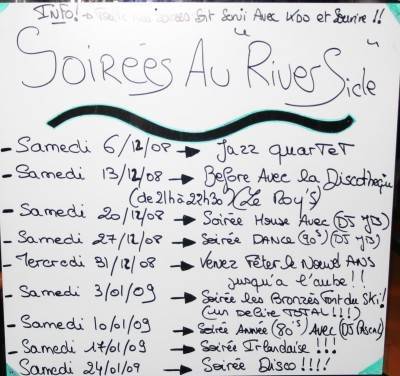 INFO! → Toute nos Soirées Sont Servi Avec KDO et Sourire !!
Soirées Au "River Side"
- Samedi 6/12/08 → Jazz quarTeT
- Samedi 13/12/08 → Before Avec la Discothèque
(de 21h à 22h30) (Le Roy's)
- Samedi 20/12/08 → Soirée House Avec (DJ JB)
- Samedi 27/12/08 → Soirée DANCE (90's) (DJ JB)
- Mercredi 31/12/08 → Venez Fêter le Nouvel ANS
jusqu'a l'aube !!
- Samedi 3/01/09 → Soirée les Bronzés Font du Ski!
(un Délire TOTAL !!!!)
- Samedi 10/01/09 → Soirée Année (80's) Avec (DJ Pascal)
- Samedi 17/01/09 → Soirée Irlandaise !!!
- Samedi 24/01/09 → Soirée Disco !!!!